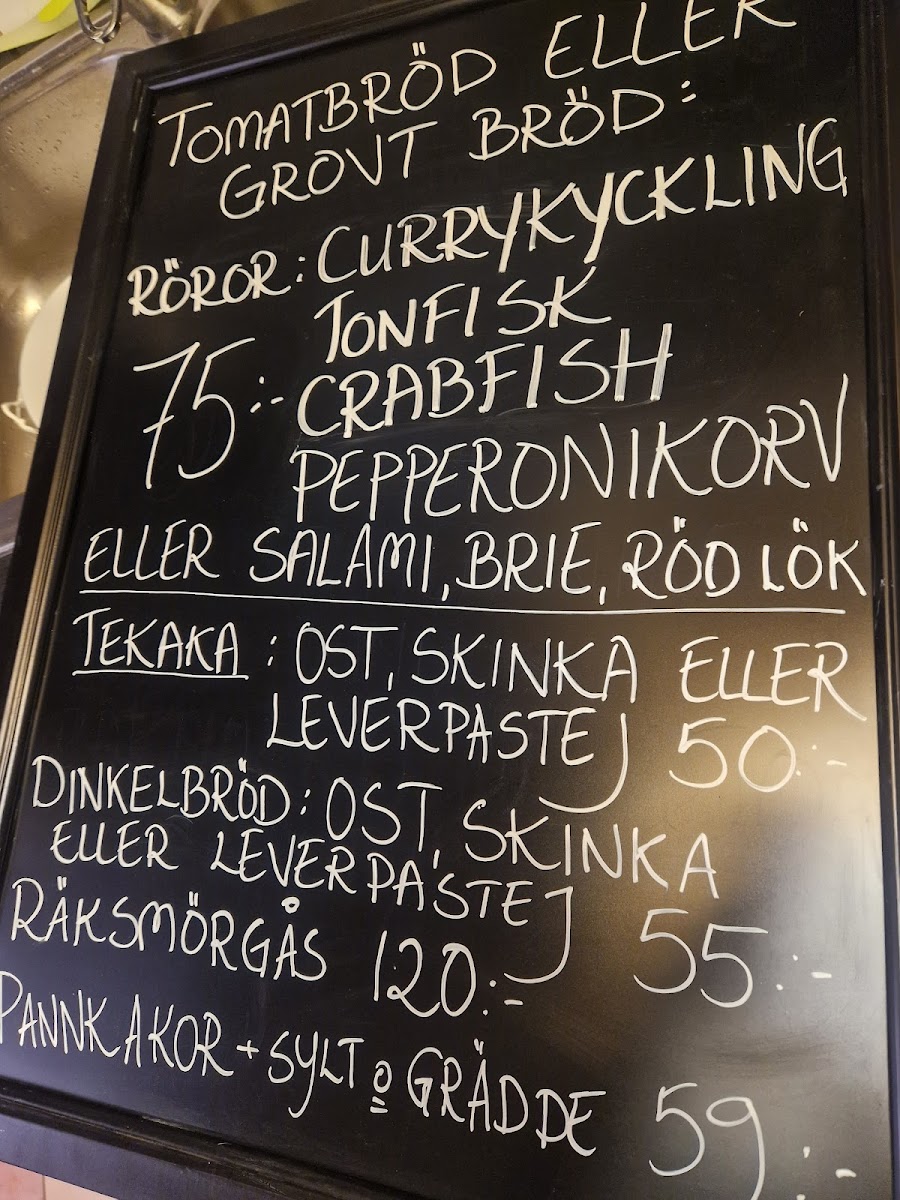 TOMATBRÖD ELLER
GROVT BRÖD:
RÖROR: CURRYKYCKLING
TONFISK
75:- CRABFISH
PEPPERONIKORV
ELLER SALAMI, BRIE, RÖD LÖK
TEKAKA: OST, SKINKA ELLER
LEVERPASTEJ 50:-
DINKELBRÖD: OST, SKINKA
ELLER LEVERPASTEJ 55:-
RÄKSMÖRGÅS 120:-
PANNKAKOR + SYLT o GRÄDDE 59:-